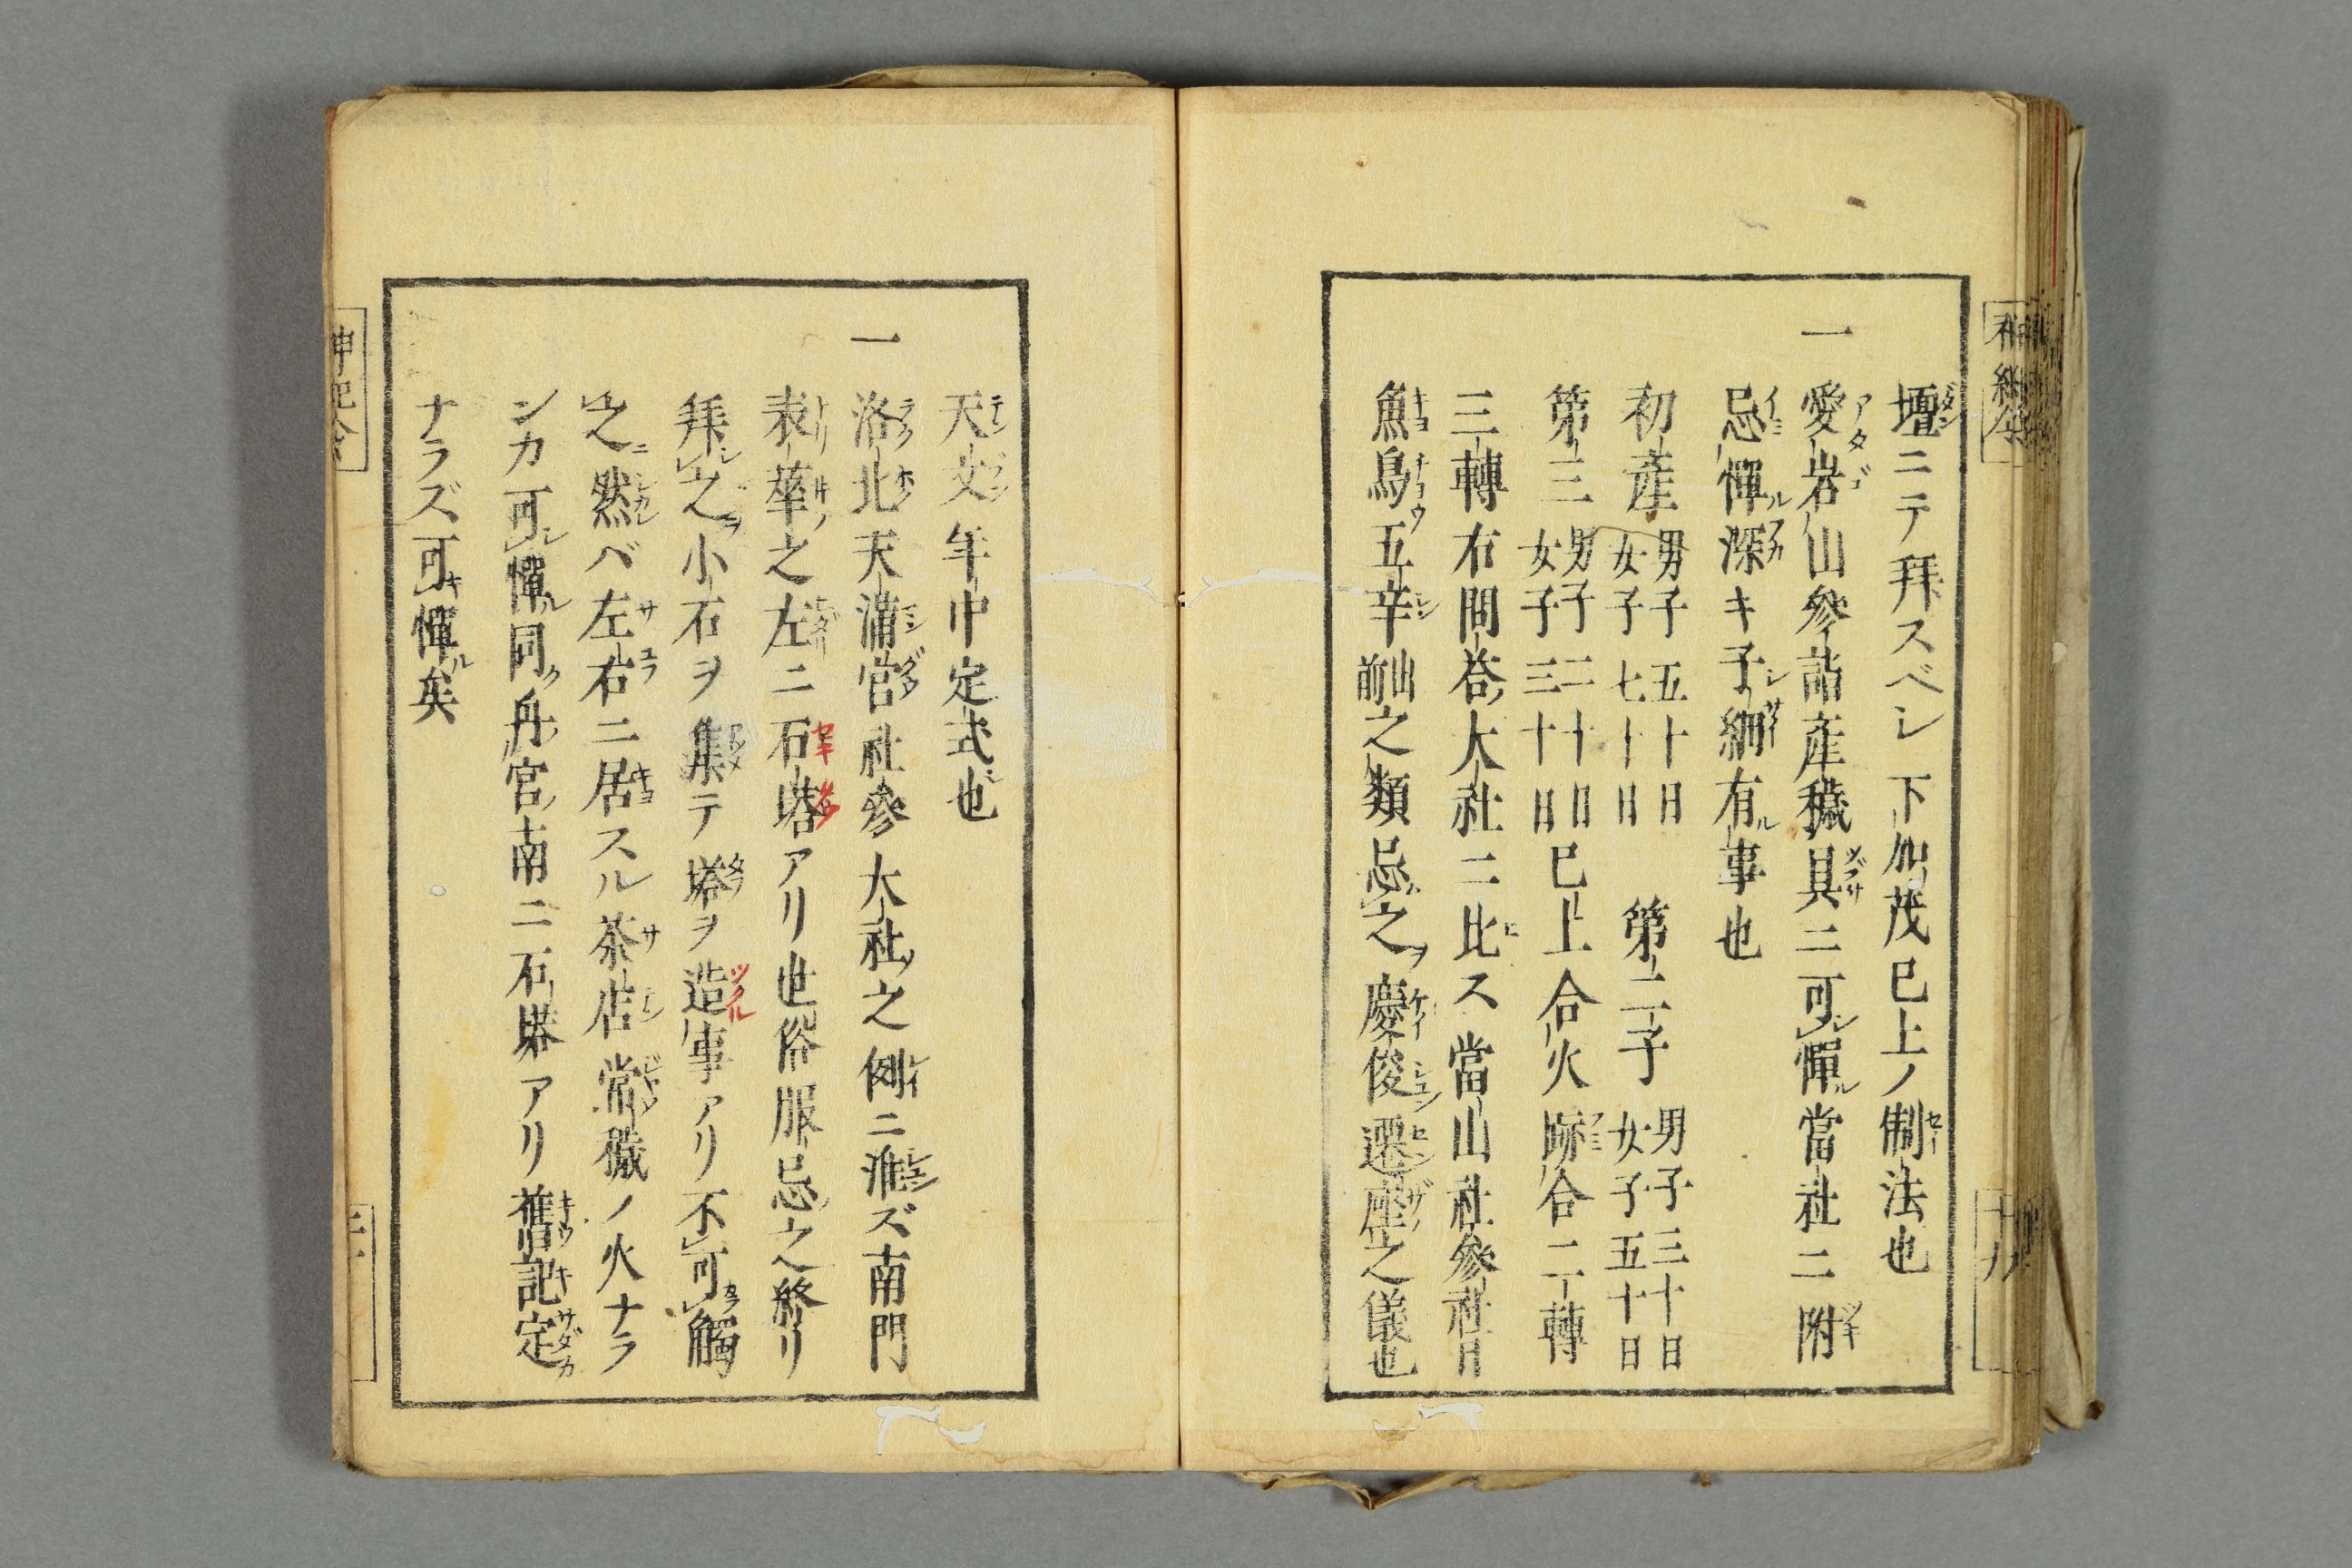 壇ニテ拜スベシ下加茂已上ノ制法也
一愛岩山參詣產穢具ニ可憚當社ニ附
忌憚深キ子細有事也
初產 男子五十日 女子七十日 第二子 男子三十日 女子五十日
第三 男子二十日 女子三十日 已上合火 跡合二轉
三轉右問荅大社ニ比ス當山社參社日
魚鳥五辛山前之類忌之慶俊遷座之儀也
天文年中定式也
一洛北天滿宮社參大社之例ニ准ズ南門
表華之左ニ石塔アリ世俗服忌之終リ
拜之小石ヲ集テ塔ヲ造事アリ不可觸
之然バ左右ニ居スル茶店常穢ノ火ナラ
ンカ可憚同舟宮南ニ石塔アリ舊記定
ナラズ可憚矣